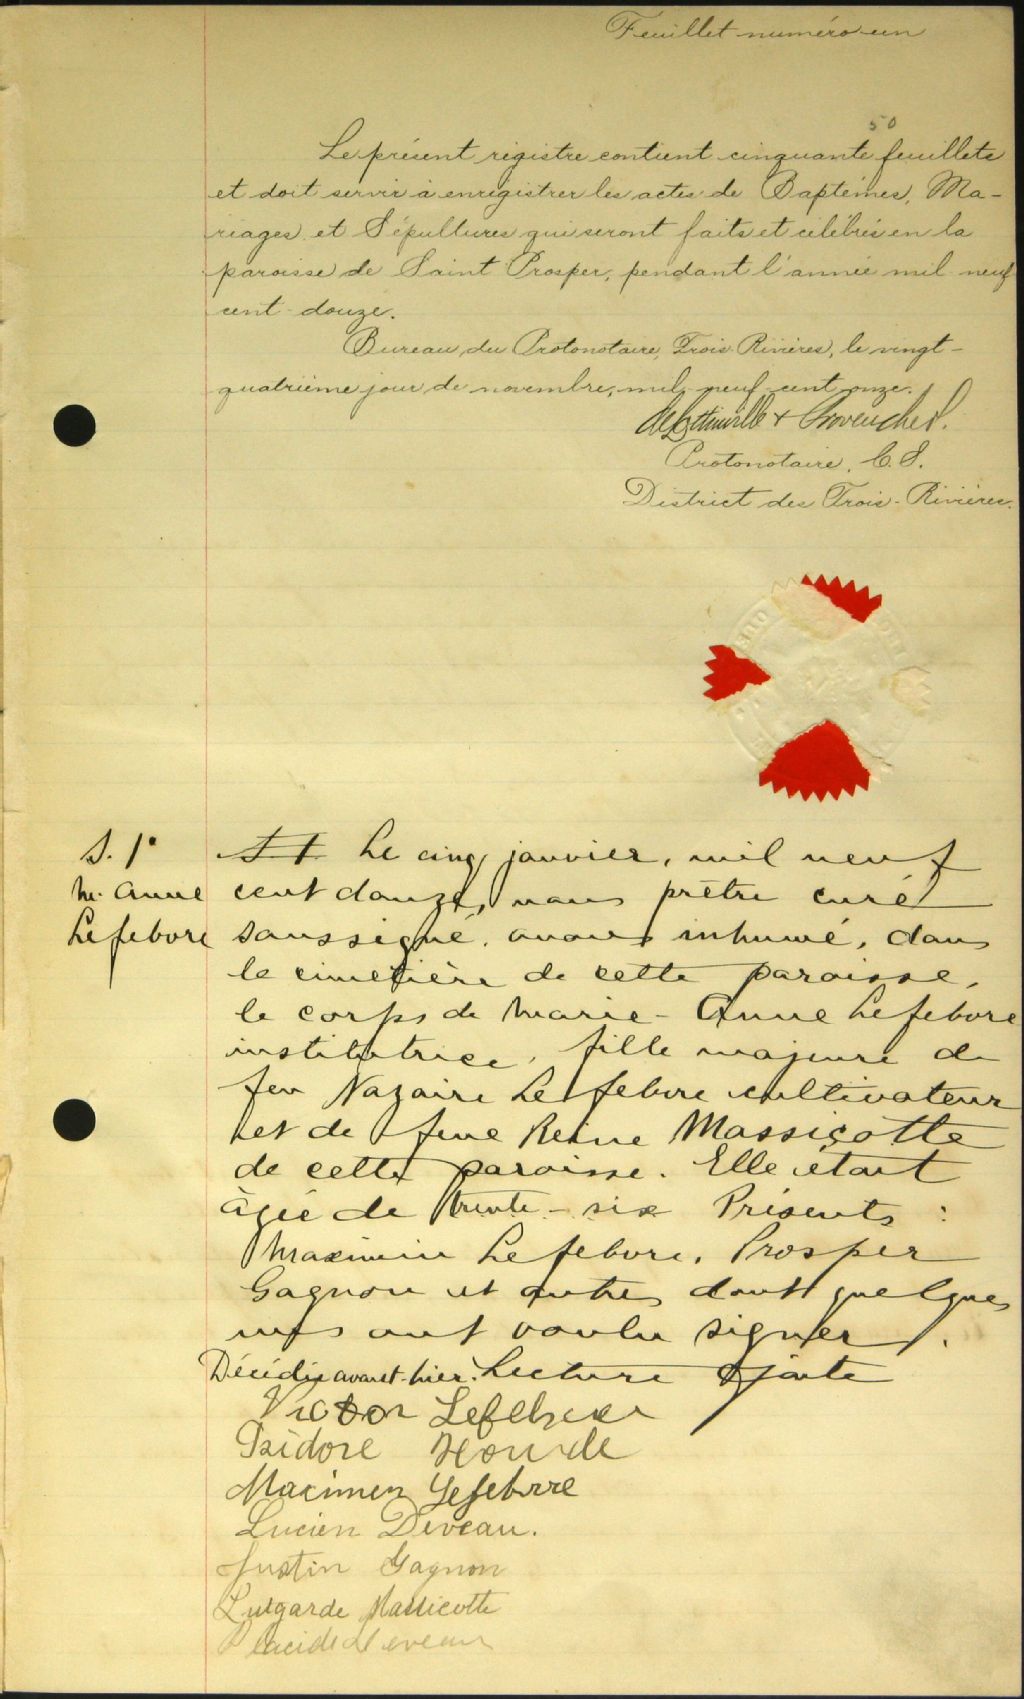 Feuillet numéro un
50
Le présent régistre contient cinquante feuillets
et doit servir à enrégistrer les actes de Baptêmes, Ma-
riages et Sépultures qui seront faits et célébrés en la
paroisse de Saint Prosper, pendant l'année mil neuf
cent douze.
Bureau du Protonotaire, Trois-Rivières, le vingt-
quatrième jour de novembre, mil neuf cent onze.
Protonotaire, C. S.
District des Trois-Rivières.
S. 1º
M. Anne
Lefebvre
Le cinq janvier, mil neuf
cent douze, nous prêtre curé
soussigné, avons inhumé, dans
le cimetière de cette paroisse,
le corps de Marie-Anne Lefebvre
institutrice, fille majeure de
feu Nazaire Lefebvre cultivateur
et de feue Reine Massicotte
de cette paroisse. Elle était
âgée de trente-six Présents :
Maximin Lefebvre, Prosper
Gagnon et autres dont quelques
uns ont voulu signer.
Décédée avant-hier. Lecture faite
Victor Lefebvre
Isidore Houde
Maximen Lefebvre
Lucien Deveau.
Justin Gagnon
Lutgarde Massicotte
Placide Deveau